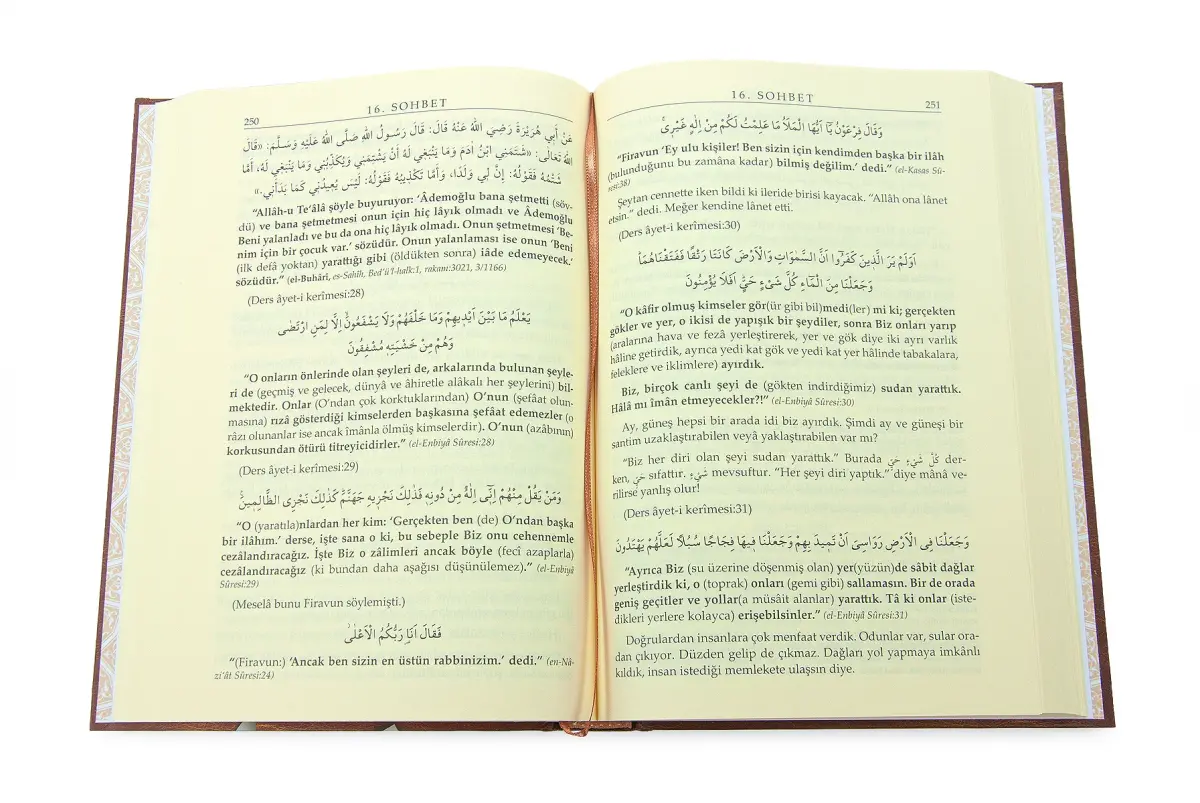 250
16. SOHBET
عَنْ أَبِي هُرَيْرَةَ رَضِيَ اللهُ عَنْهُ قَالَ: قَالَ رَسُولُ اللهِ صَلَّى اللهُ عَلَيْهِ وَسَلَّمَ: «قَالَ
اللهُ تَعَالَى: «شَتَمَنِي ابْنُ آدَمَ وَمَا يَنْبَغِي لَهُ أَنْ يَشْتِمَنِي وَيُكَذِّبُنِي وَمَا يَنْبَغِي لَهُ، أَمَّا
شَتْمُهُ فَقَوْلُهُ: إِنَّ لِي وَلَدًا، وَأَمَّا تَكْذِيبُهُ فَقَوْلُهُ: لَيْسَ يُعِيدُنِي كَمَا بَدَأَنِي.»
“Allâh-u Te‘âlâ şöyle buyuruyor: ‘Âdemoğlu bana şetmetti (söv-
dü) ve bana şetmetmesi onun için hiç lâyık olmadı ve Âdemoğlu
Beni yalanladı ve bu da ona hiç lâyık olmadı. Onun şetmetmesi ‘Be-
nim için bir çocuk var.’ sözüdür. Onun yalanlaması ise onun ‘Beni
(ilk defâ yoktan) yarattığı gibi (öldükten sonra) iâde edemeyecek.’
sözüdür.” (el-Buhârî, es-Sahîh, Bed’ü’l-halk:1, rakam:3021, 3/1166)
(Ders âyet-i kerîmesi:28)
يَعْلَمُ مَا بَيْنَ اَيْدِيهِمْ وَمَا خَلْفَهُمْ وَلَا يَشْفَعُونَۙ اِلَّا لِمَنِ ارْتَضٰى
وَهُمْ مِنْ خَشْيَتِهٖ مُشْفِقُونَ
“O onların önlerinde olan şeyleri de, arkalarında bulunan şeyle-
ri de (geçmiş ve gelecek, dünyâ ve âhiretle alâkalı her şeylerini) bil-
mektedir. Onlar (O’ndan çok korktuklarından) O’nun (şefaât olun-
masına) rızâ gösterdiği kimselerden başkasına şefâat edemezler (o
râzı olunanlar ise ancak imânla ölmüş kimselerdir). O’nun (azâbının)
korkusundan ötürü titreyicidirler.” (el-Enbiyâ Sûresi:28)
(Ders âyet-i kerîmesi:29)
وَمَنْ يَقُلْ مِنْهُمْ اِنّٖٓى اِلٰهٌ مِنْ دُونِهٖ فَذٰلِكَ نَجْزٖيهِ جَهَنَّمَ كَذٰلِكَ نَجْزِى الظَّالِمٖينَ
“O (yaratıla)nlardan her kim: ‘Gerçekten ben (de) O’ndan başka
bir ilâhım.’ derse, işte sana o ki, bu sebeple Biz onu cehennemle
cezâlandıracağız. İşte Biz o zâlimleri ancak böyle (fecî azaplarla)
cezâlandıracağız (ki bundan daha aşağısı düşünülemez).” (el-Enbiyâ
Sûresi:29)
(Meselâ bunu Firavun söylemişti.)
فَقَالَ اَنَا۬ رَبُّكُمُ الْاَعْلٰى
“(Firavun:) ‘Ancak ben sizin en üstün rabbinizim.’ dedi.” (en-Nâ-
zi‘ât Sûresi:24)
16. SOHBET
251
وَقَالَ فِرْعَوْنُ يَٓا اَيُّهَا الْمَلَاُ مَا عَلِمْتُ لَكُمْ مِنْ اِلٰهٍ غَيْرٖى
“Firavun ‘Ey ulu kişiler! Ben sizin için kendimden başka bir ilâh
(bulunduğunu bu zamâna kadar) bilmiş değilim.’ dedi.” (el-Kasas Sû-
resi:38)
Şeytan cennette iken bildi ki ileride birisi kayacak. “Allâh ona lânet
etsin.” dedi. Meğer kendine lânet etti.
(Ders âyet-i kerîmesi:30)
اَوَلَمْ يَرَ الَّذٖينَ كَفَرُٓوا اَنَّ السَّمٰوَاتِ وَالْاَرْضَ كَانَتَا رَتْقًا فَفَتَقْنَاهُمَا
وَجَعَلْنَا مِنَ الْمَٓاءِ كُلَّ شَىْءٍ حَىٍّ اَفَلَا يُؤْمِنُونَ
“O kâfir olmuş kimseler gör(ür gibi bil)medi(ler) mi ki; gerçekten
gökler ve yer, o ikisi de yapışık bir şeydiler, sonra Biz onları yarıp
(aralarına hava ve fezâ yerleştirerek, yer ve gök diye iki ayrı varlık
hâline getirdik, ayrıca yedi kat gök ve yedi kat yer hâlinde tabakalara,
feleklere ve iklimlere) ayırdık.
Biz, birçok canlı şeyi de (gökten indirdiğimiz) sudan yarattık.
Hâlâ mı îmân etmeyecekler?!” (el-Enbiyâ Sûresi:30)
Ay, güneş hepsi bir arada idi biz ayırdık. Şimdi ay ve güneşi bir
santim uzaklaştırabilen veyâ yaklaştırabilen var mı?
“Biz her diri olan şeyi sudan yarattık.” Burada كُلَّ شَىْءٍ حَىٍّ der-
ken, حَىٍّ sıfattır. شَىْءٍ mevsuftur. “Her şeyi diri yaptık.” diye mânâ ve-
rilirse yanlış olur!
(Ders âyet-i kerîmesi:31)
وَجَعَلْنَا فِى الْاَرْضِ رَوَاسِىَ اَنْ تَمٖيدَ بِهِمْ وَجَعَلْنَا فٖيهَا فِجَاجًا سُبُلًا لَعَلَّهُمْ يَهْتَدُونَ
“Ayrıca Biz (su üzerine döşenmiş olan) yer(yüzün)de sâbit dağlar
yerleştirdik ki, o (toprak) onları (gemi gibi) sallamasın. Bir de orada
geniş geçitler ve yollar(a müsâit alanlar) yarattık. Tâ ki onlar (iste-
dikleri yerlere kolayca) erişebilsinler.” (el-Enbiyâ Sûresi:31)
Doğrulardan insanlara çok menfaat verdik. Odunlar var, sular ora-
dan çıkıyor. Düzden gelip de çıkmaz. Dağları yol yapmaya imkânlı
kıldık, insan istediği memlekete ulaşsın diye.